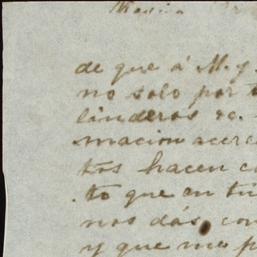 de que á M. y
no solo por
linderos
macion acerc
tos hacen c
to que en tu
nos dás, con
y que me p